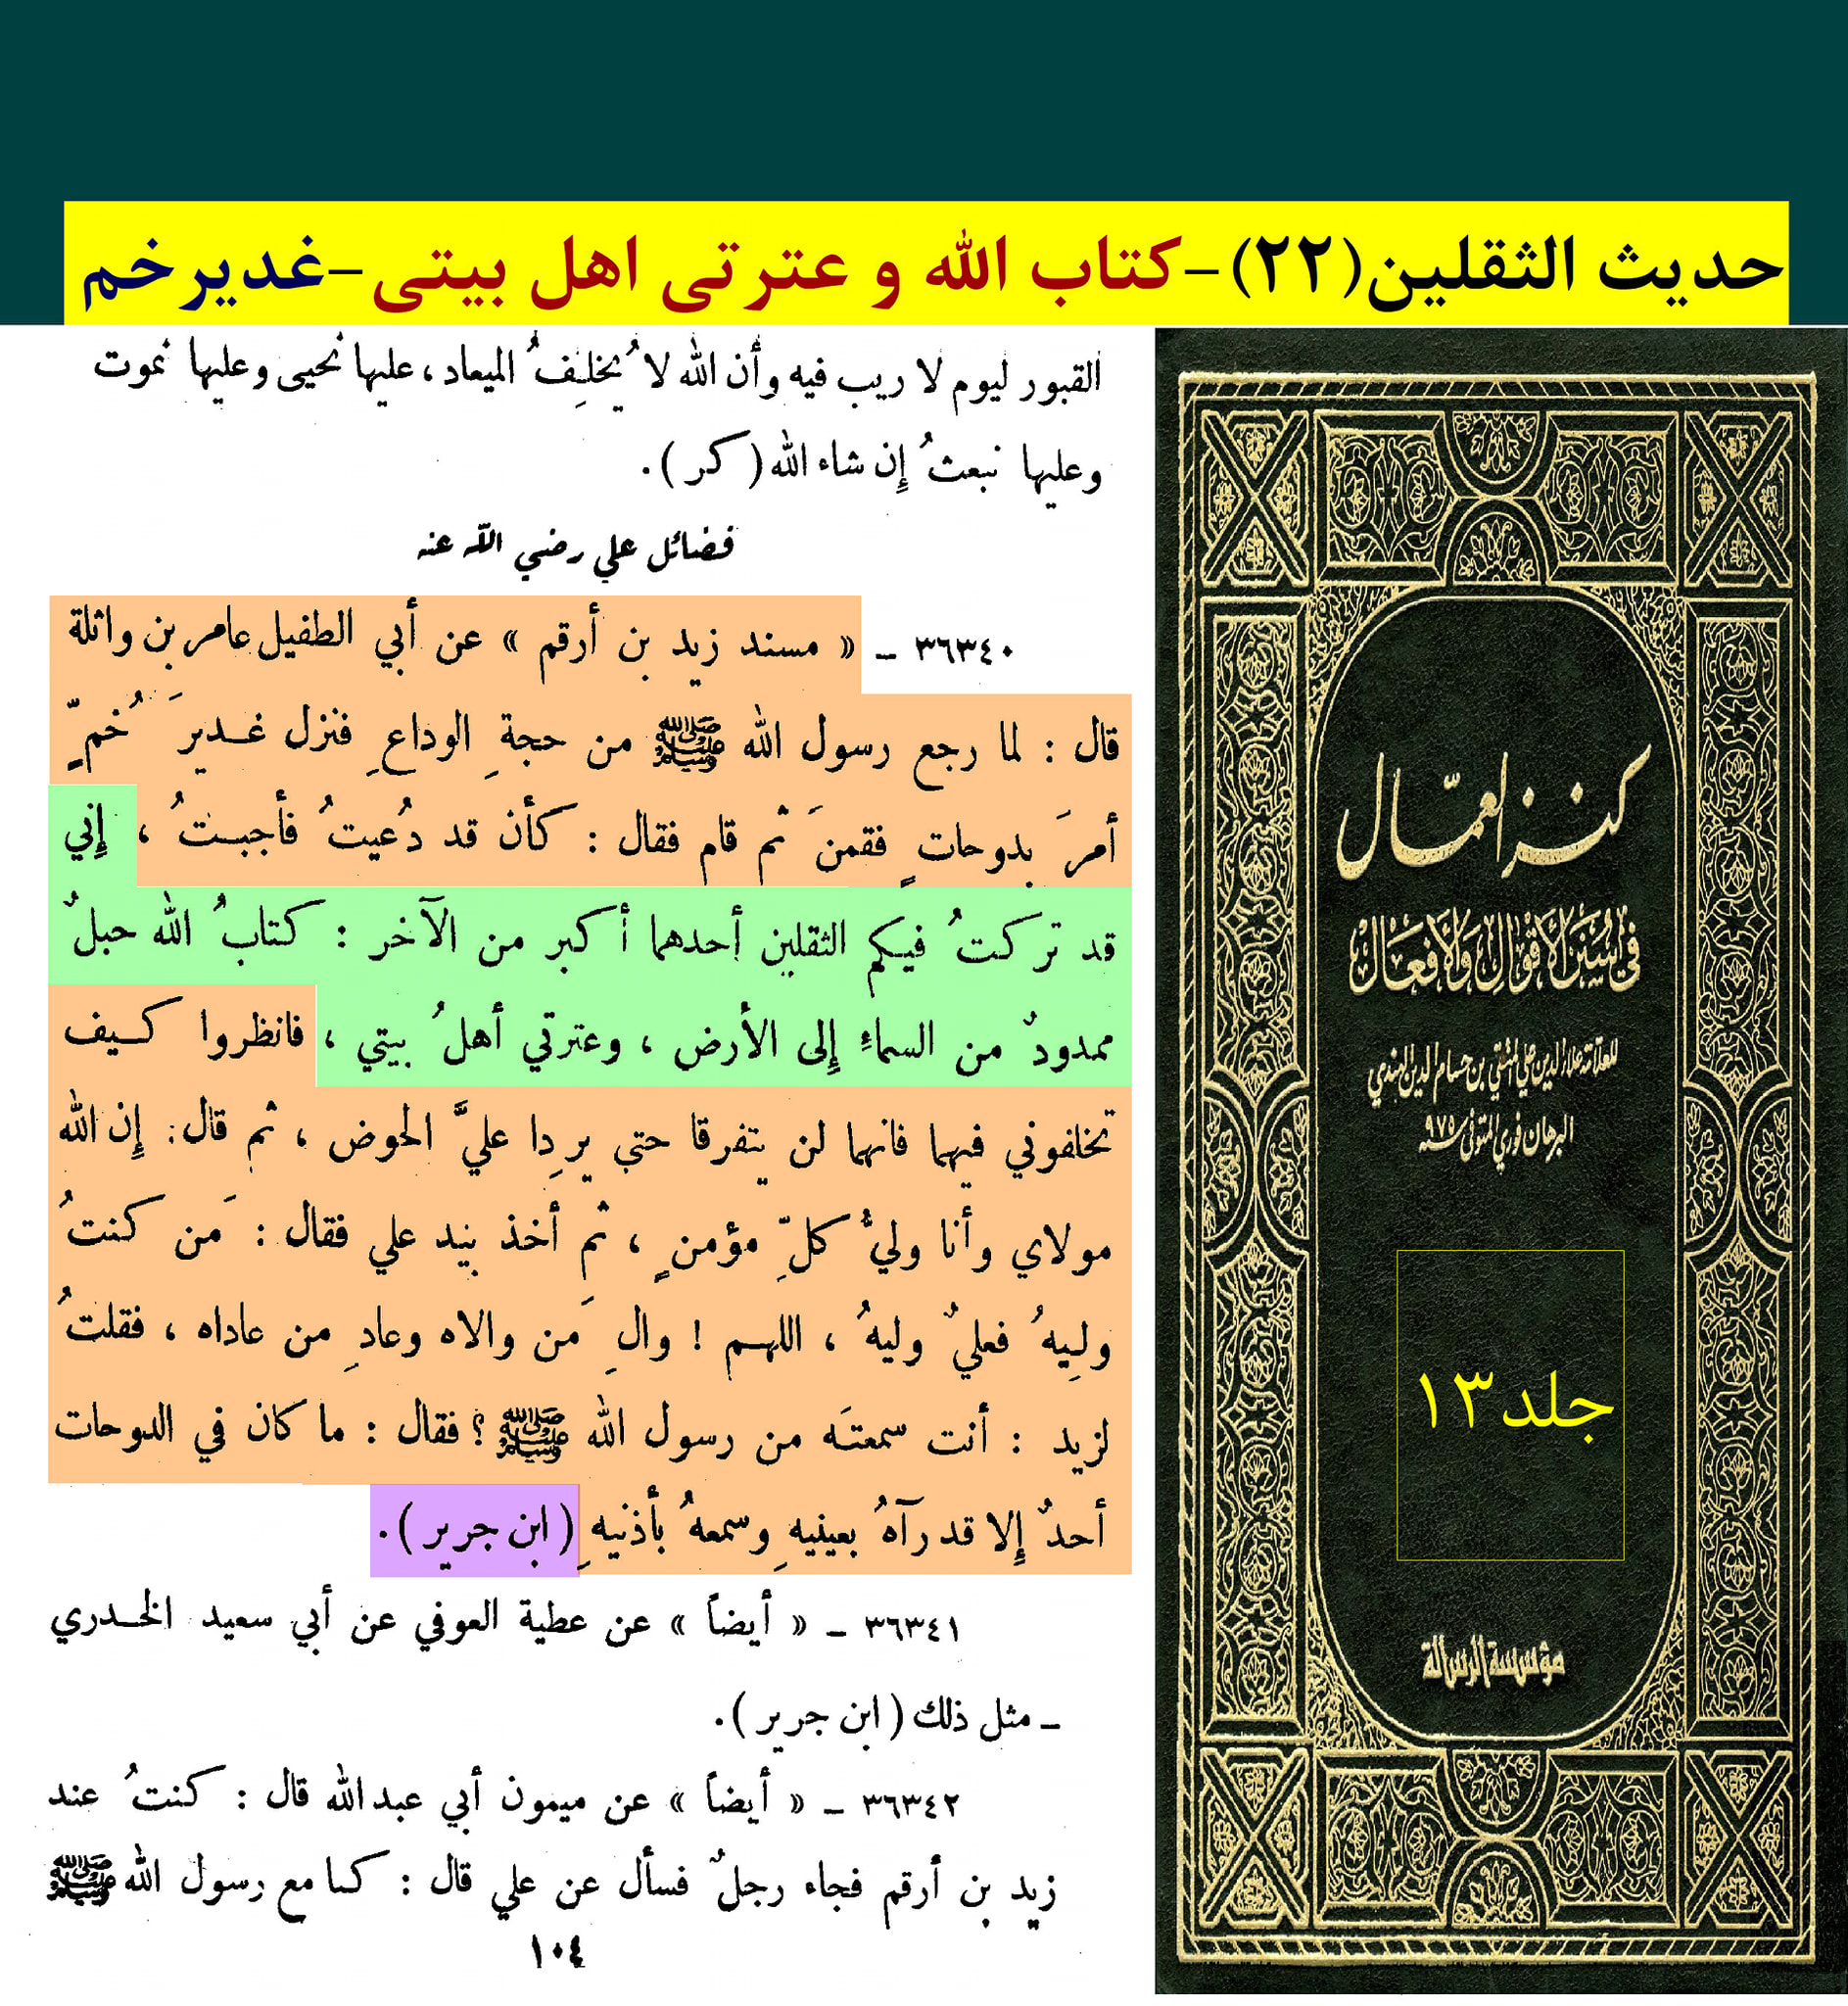 حديث الثقلين(٢٢)-كتاب الله و عترتى اهل بيتى-غديرخم
القبور ليوم لا ريب فيه وأن الله لا يُخلِفُ الميعاد، عليها نحيى وعليها نموت
وعليها نبعثُ إِن شاء الله (كر).
فضائل علي رضي الله عنه
٣٦٣٤٠ ـ « مسند زيد بن أرقم » عن أبي الطفيل عامر بن واثلة
قال : لما رجع رسول الله ﷺ من حجةِ الوداعِ فنزل غديرَ خُمٍّ
أمرَ بدوحاتٍ فقمنَ ثم قام فقال : كأن قد دُعيتُ فأجبتُ ، إِني
قد تركتُ فيكم الثقلين أحدهما أكبر من الآخر : كتابُ الله حبلٌ
ممدودٌ من السماءِ إِلى الأرض ، وعترتي أهلُ بيتي ، فانظروا كيف
تخلفوني فيهما فانهما لن يتفرقا حتى يرِدا عليَّ الحوض ، ثم قال: إِن الله
مولاي وأنا وليُّ كلِّ مؤمنٍ ، ثم أخذ بيد علي فقال : مَن كنتُ
وليهُ فعليٌ وليهُ ، اللهم ! والِ مَن والاه وعادِ من عاداه ، فقلتُ
لزيد : أنت سمعتَه من رسول الله ﷺ ؟ فقال : ما كان في الدوحات
أحدٌ إِلا قد رآهُ بعينيهِ وسمعهُ بأذنيهِ (ابن جرير).
٣٦٣٤١ ـ « أيضاً » عن عطية العوفي عن أبي سعيد الخدري
ـ مثل ذلك (ابن جرير).
٣٦٣٤٢ ـ « أيضاً » عن ميمون أبي عبد الله قال : كنتُ عند
زيد بن أرقم فجاء رجلٌ فسأل عن علي قال : كنا مع رسول الله ﷺ
١٠٤
كنز العمّال
في سُنَن الأقوال والأفعال
للعلامة علاء الدين علي المتقي بن حسام الدين الهندي
البرهان فوري المتوفى سنة ٩٧٥
جلد١٣
مؤسسة الرسالة